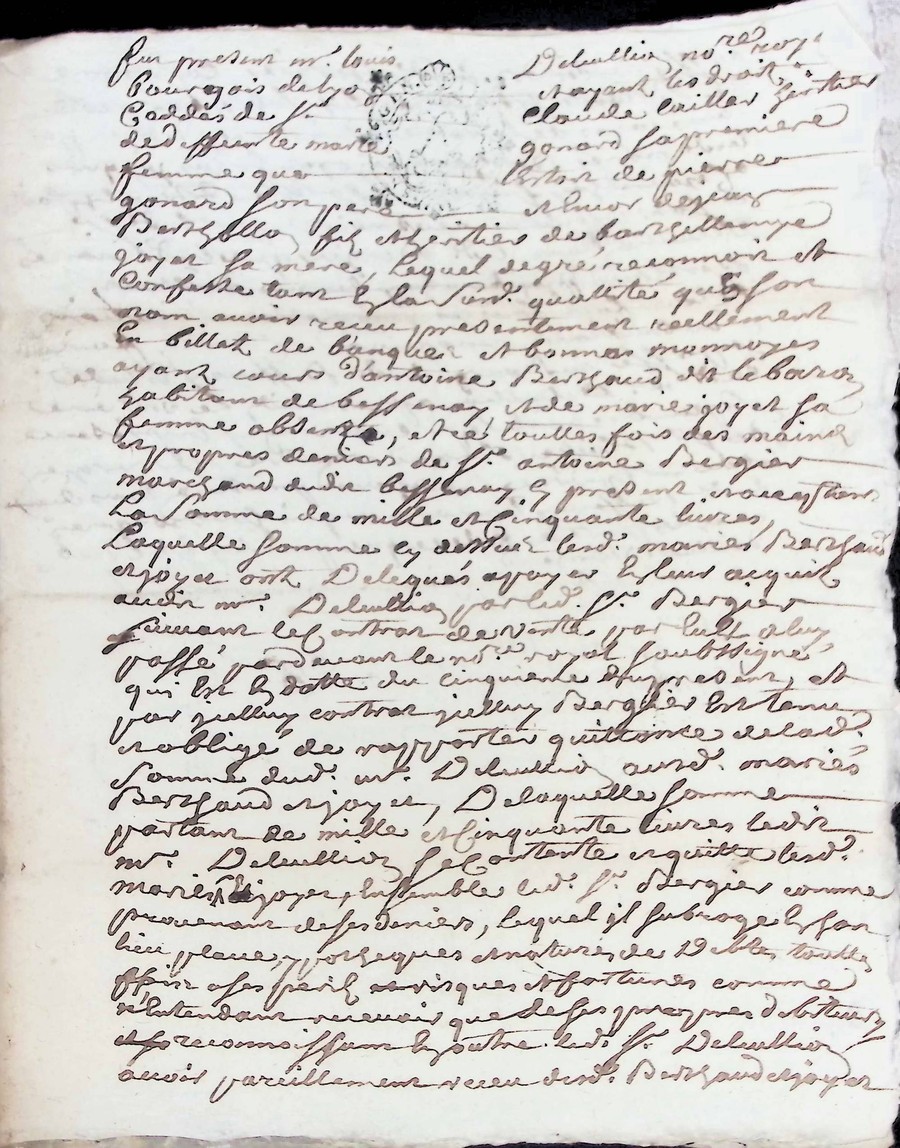 fut present mr. louis Deleullion no.re royl
bourgois de lyon et ayant les droits
Ceddés de Sr. Claude Cailler heritier
de deffuente marie gonard sa premiere
femme que de pierre
gonard son pere et encor de jean
Berthollon fils et heritier de barthellemye
joyet sa mere, lequel de gré reconnoit et
Confesse tant En la Surd. quallité qu'En Son
nom avoir receu presentement reellement
En billet de banque et bonnes monnoyes
ayant cours d'antoine Berthaud dit le baron
habitant de bessenay, et de marie joyet sa
femme absents, et ce touttes fois des mains
et propres deniers de Sr. antoine Bergier
marchand dudit bessenay Cy present et acceptant
La Somme de mille et Cinquante livres,
Laquelle Somme cy dessus lesd. mariés Berthaud
et joyet ont Delegués a payer En leur acquit
audit mr. Deleullion par led. Sr. Bergier
Suivant le Contrat de vente par Eux a luy
passé pardevant le nore. royal Soubssigné
qui Est En datte du cinquieme du present, et
par jcelluy contrat jcelluy Bergier Est tenu
et obligé de rapporter quittance de lad.
Somme dud. mr. Deleullion ausd. mariés
Berthaud et joyet, De laquelle Somme
partant de mille et Cinquante livres ledit
mr. Deleullion Se Contente et quitte lesd.
mariés joyet, Ensemble led. Sr. Bergier comme
provenant de ses deniers, lequel jl subroge En son
lieu place, ypotheques et natures de Debtes touttes
fois a ses perils et risques et fortunes comme
n'Entendant recevoir que de ses propres debiteurs
reconnoissant En outre led. Sr. Deleullion
avoir pareillement receu desd. Berthaud et joyet